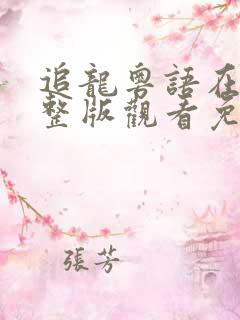 追龍粵語在
整版觀看免
張芳